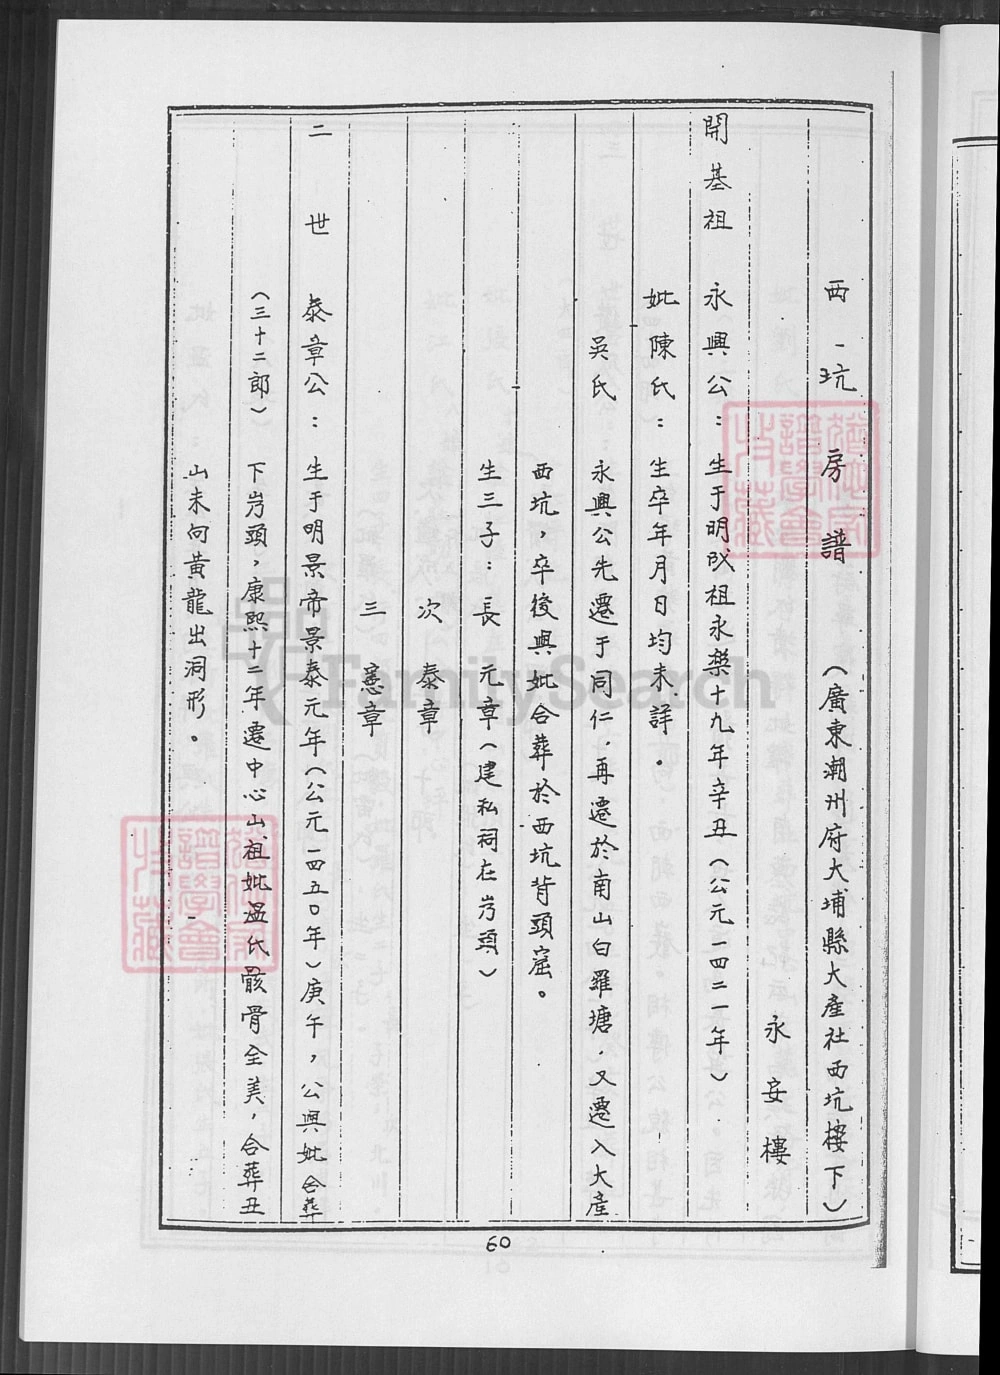 西坑房譜（廣東潮州府大埔縣大產社西坑樓下）
永安樓
開基祖 永興公：生于明成祖永樂十九年辛丑（公元一四二一年）
妣陳氏：生卒年月日均未詳。
吳氏 永興公先遷于同仁，再遷於南山白羅塘，又遷入大產
西坑，卒後與妣合葬於西坑背頭窟。
生三子：長 元章（建私祠在屶頭）
次 泰章
三 憲章
二世 泰章公：生于明景帝景泰元年（公元一四五０年）庚午，公與妣合葬
（三十二郎） 下屶頭，康熙十二年遷中心山祖妣溫氏骸骨全美，合葬丑
山未向黃龍出洞形。
60
譜學會
珍藏
譜學會
珍藏
FamilySearch